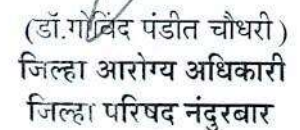 (डॉ.गोविंद पंडीत चौधरी )
जिल्हा आरोग्य अधिकारी
जिल्हा परिषद नंदुरबार